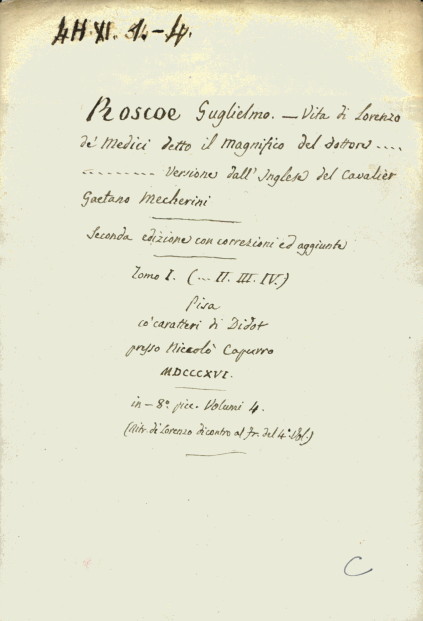 4H. XI. 1-4.
Roscoe Guglielmo. — Vita di Lorenzo
de' Medici detto il Magnifico del dottore ....
......... Versione dall'Inglese del Cavalier
Gaetano Mecherini
Seconda edizione con correzioni ed aggiunte
Tomo I. (... II. III. IV.)
Pisa
co' caratteri di Didot
presso Niccolò Capurro
MDCCCXVI.
in-8°. picc. Volumi 4.
(Ritr. di Lorenzo dicontro al fr. del 4° Vol.)
C